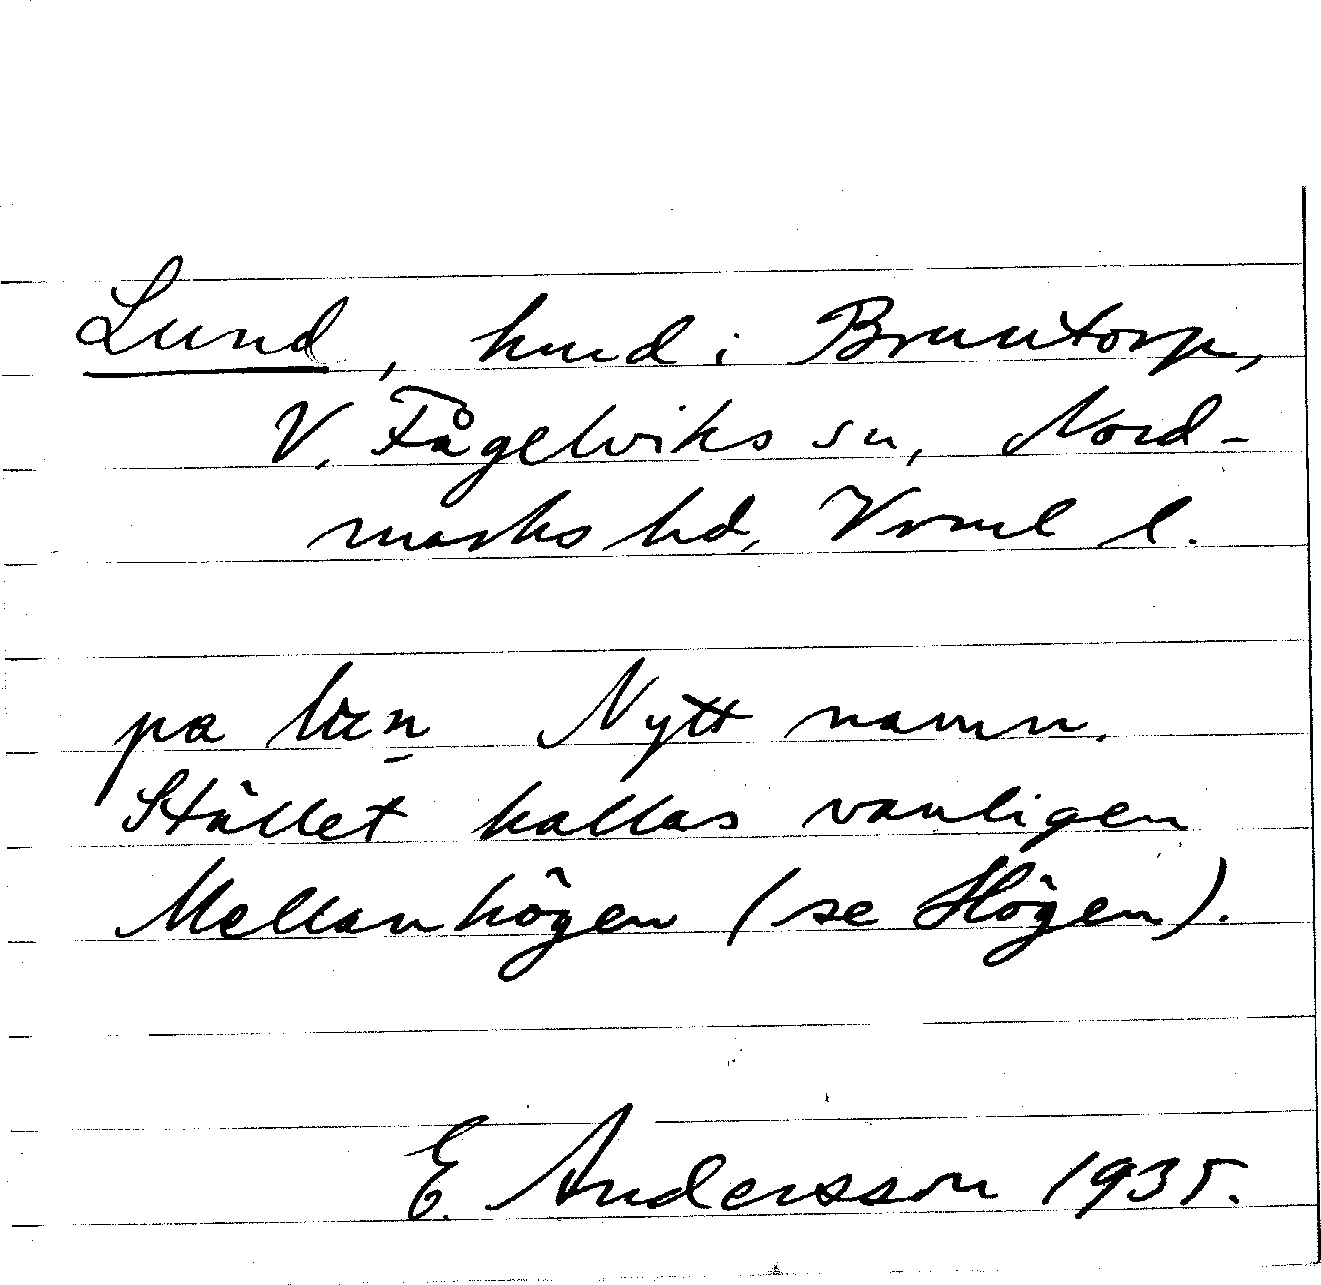 Lund, hmd i Bruntorp,
V. Fågelviks sn, Nord-
marks hd, Vrml l.
pa Nytt namn.
Stället kallas vanligen
Mellanhögen (se Högen).
E. Andersson 1935.